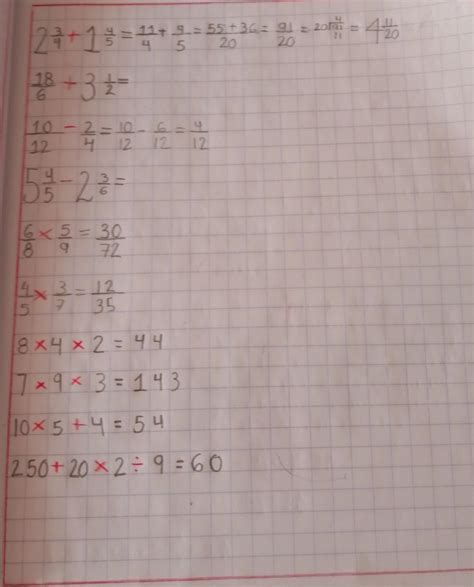 2 3/4 + 1 4/5 = 11/4 + 9/5 = 55+36/20 = 91/20 = = 4 11/20
18/6 + 3 1/2 =
10/12 - 2/4 = 10/12 - 6/12 = 4/12
5 4/5 - 2 3/6 =
6/8 × 5/9 = 30/72
4/5 × 3/7 = 12/35
8 × 4 × 2 = 44
7 × 9 × 3 = 143
10 × 5 + 4 = 54
250 + 20 × 2 ÷ 9 = 60